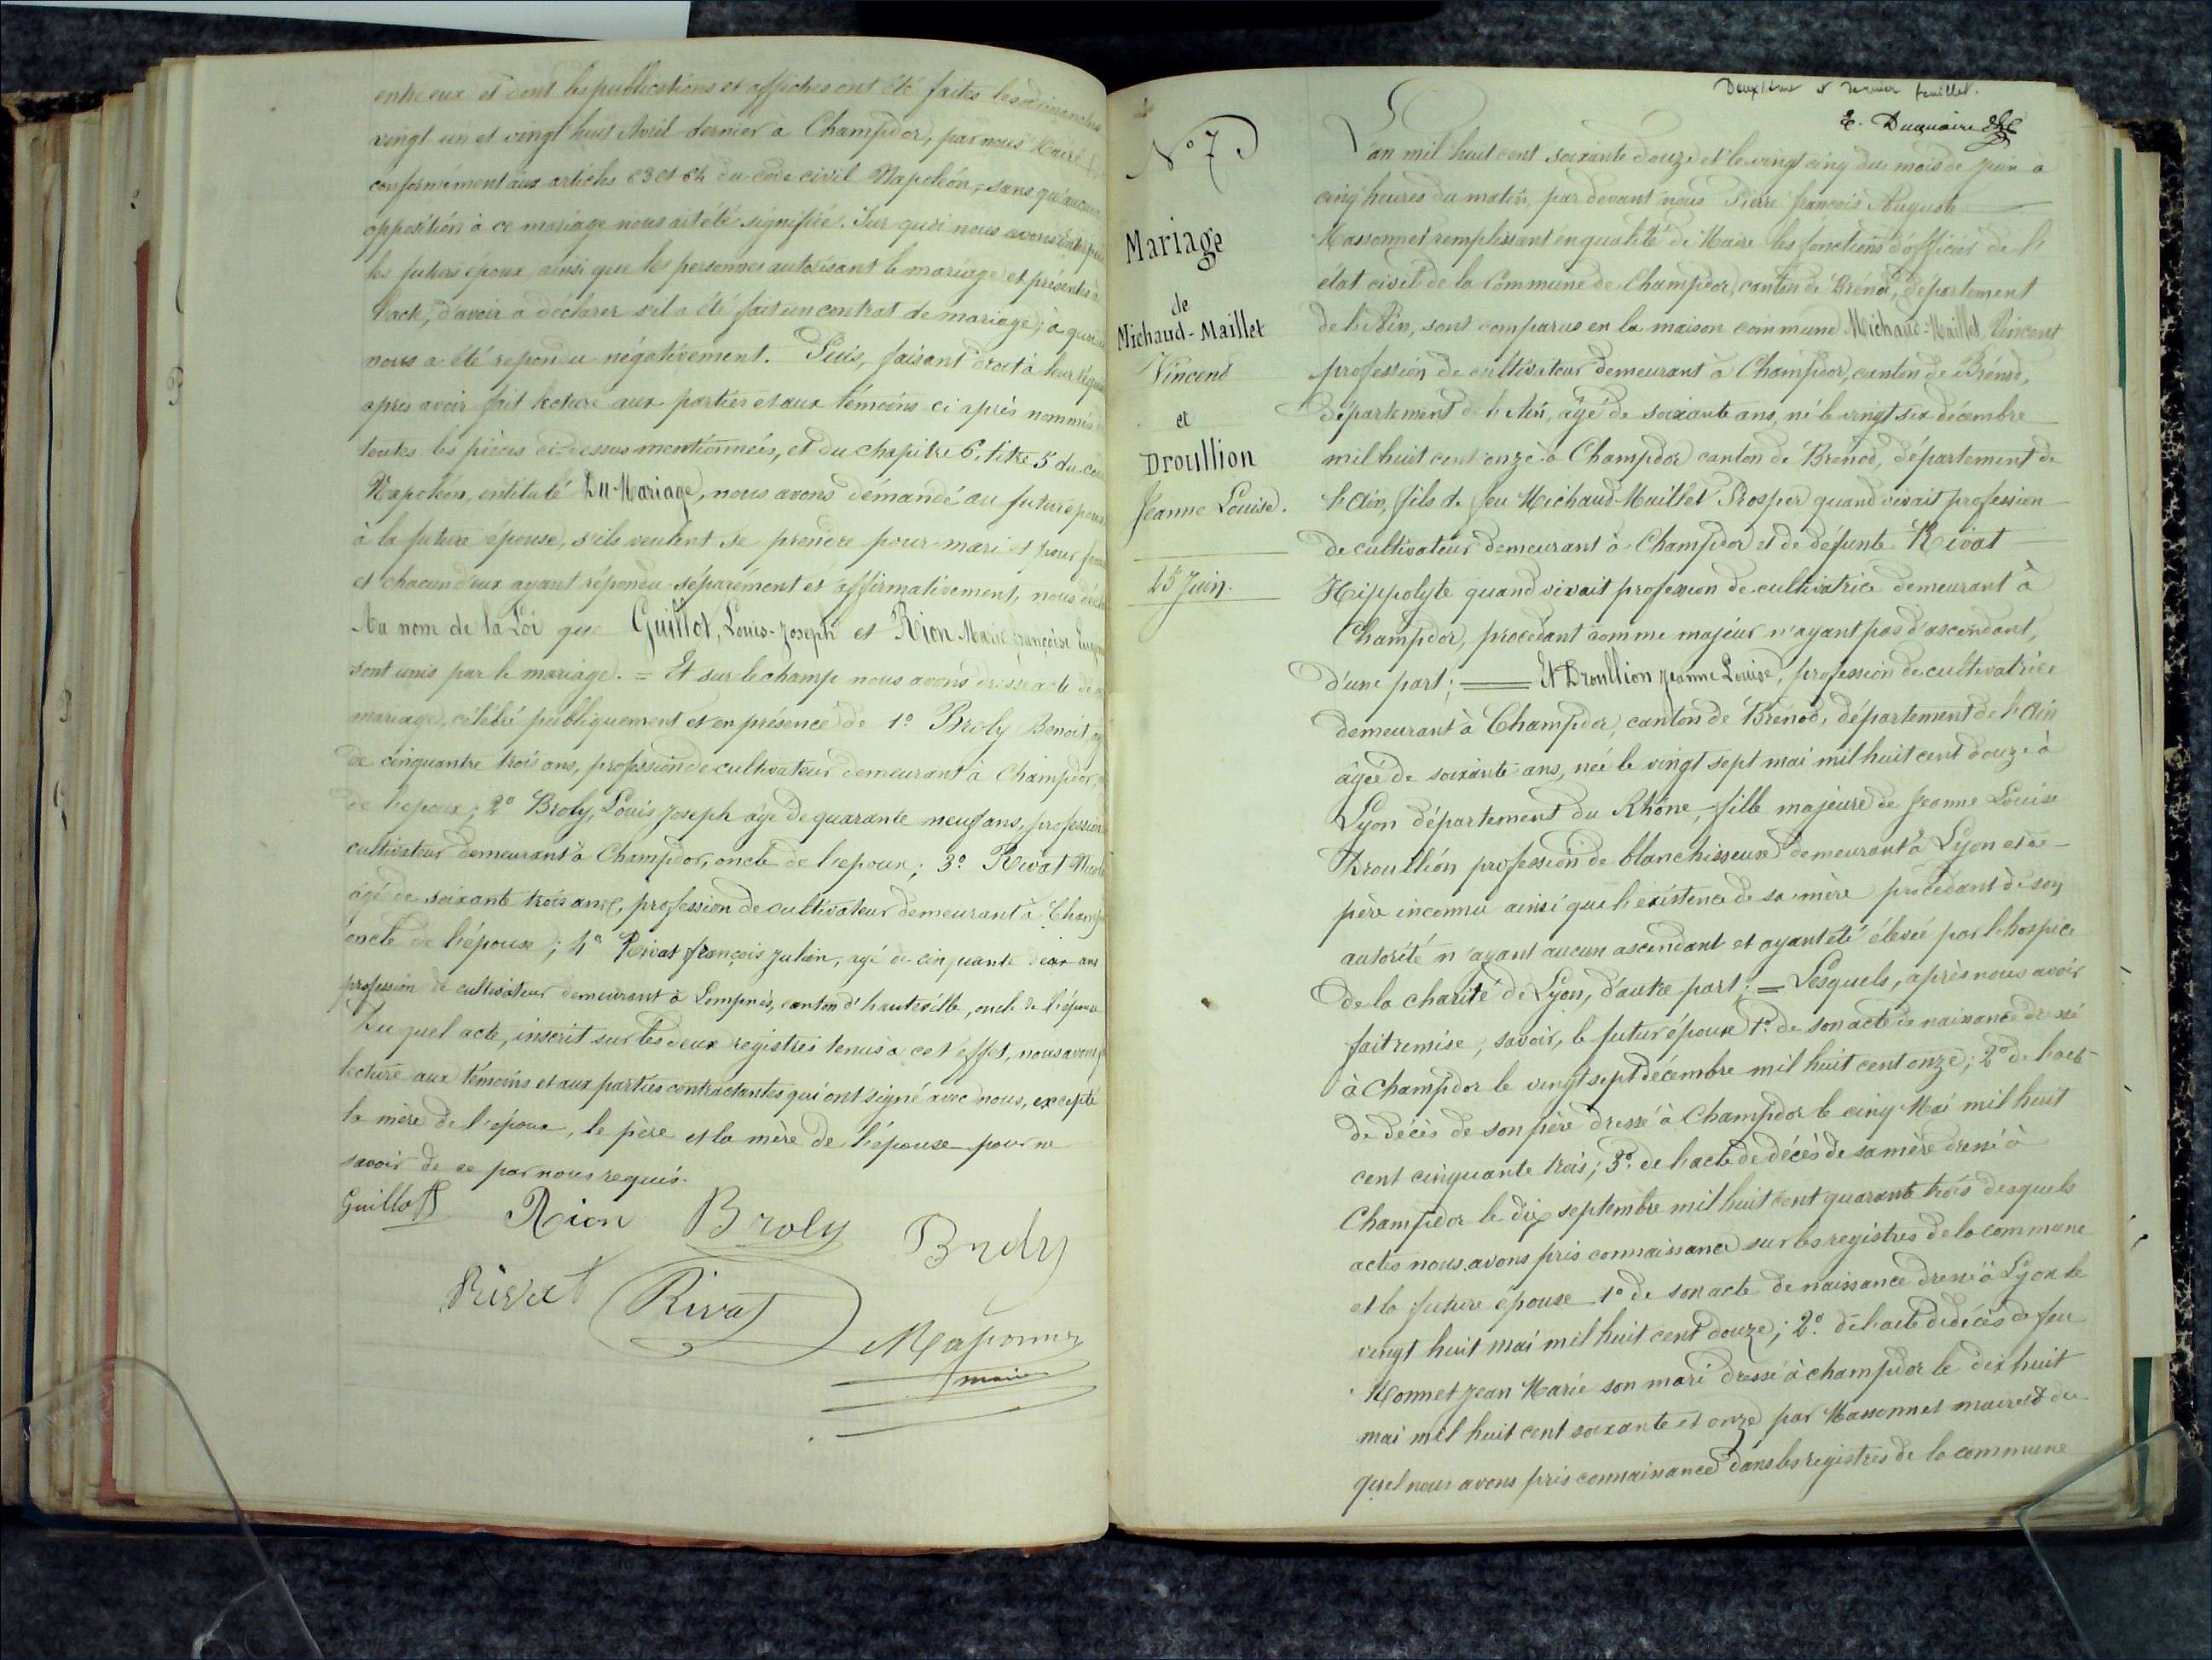 entre eux et dont les publications et affiches ont été faites les dimanches
vingt un et vingt huit Avril dernier à Champdor, par nous Maire
conformément aux articles 63 et 64 du code civil Napoléon, sans qu'aucune
opposition à ce mariage nous ait été signifiée. Sur quoi nous avons
les futurs époux ainsi que les personnes autorisant le mariage et présentes à
l'acte, d'avoir à déclarer s'il a été fait un contrat de mariage; à quoi
nous a été répondu négativement. Puis, faisant droit à leur
après avoir fait lecture aux parties et aux témoins ci après nommés
toutes les pièces ci-dessus mentionnées, et du chapitre 6, titre 5 du code
Napoléon, intitulé Du Mariage, nous avons demandé au futur époux
à la future épouse, s'ils veulent se prendre pour mari et pour femme
et chacun d'eux ayant répondu séparément et affirmativement, nous
Au nom de la Loi que Guillot, Louis-Joseph et Rion Marie françoise
sont unis par le mariage. = Et sur le champ nous avons dressé acte de
mariage, célébré publiquement et en présence de 1º Broly Benoit,
de cinquantre trois ans, profession de cultivateur demeurant à Champdor,
de l'epoux; 2º Broly, Louis Joseph âgé de quarante neuf ans, profession
cultivateur demeurant à Champdor, oncle de l'epoux; 3º Rivat
âgé de soixante trois ans, profession de cultivateur demeurant à
oncle de l'épouse; 4º Rivat françois Julien, agé de cinquante deux ans
profession de cultivateur demeurant à Lompnès, canton d'hauteville, oncle de l'épouse
Du quel acte, inscrit sur les deux registres tenus à cet effet, nous avons
lecture aux témoins et aux parties contractantes qui ont signé avec nous, excepté
la mère de l'époux, le père et la mère de l'épouse pour ne
savoir de ce par nous requis.
Guillot Rion Broly Broly
Rivat Rivat
Massonnet
maire
Deuxième et dernier feuillet.
E. Duquaire
Nº 7
Mariage
de
Michaud-Maillet
Vincend
et
Droullion
Jeanne Louise.
25 Juin.
L'an mil huit cent soixante douze et le vingt cinq du mois de juin à
cinq heures du matin, par devant nous Pierre françois Auguste
Massonnet remplissant en qualité de Maire les fonctions d'officier de l'
état civil de la Commune de Champdor, canton de Brénod, département
de l'Ain, sont comparus en la maison commune Michaud-Maillet Vincent
profession de cultivateur demeurant à Champdor, canton de Brénod,
département de l'Ain, âgé de soixante ans, né le vingt six décembre
mil huit cent onze à Champdor canton de Brénod, département de
l'Ain, fils de feu Michaud-Maillet Prosper quand vivait profession
de cultivateur demeurant à Champdor et de défunte Rivat
Hippolyte quand vivait profession de cultivatrice demeurant à
Champdor, procédant comme majeur n'ayant pas d'ascendant,
d'une part; Et Droullion Jeanne Louise, profession de cultivatrice
demeurant à Champdor, canton de Brénod, département de l'Ain
âgée de soixante ans, née le vingt sept mai mil huit cent douze à
Lyon département du Rhône, fille majeure de Jeanne Louise
Droullion profession de blanchisseuse demeurant à Lyon et de
père inconnu ainsi que l'existence de sa mère procédant de son
autorité n'ayant aucun ascendant et ayant été élevée par l'hospice
de la charité de Lyon, d'autre part; = Lesquels, après nous avoir
fait remise, savoir, le futur époux 1º de son acte de naissance dressé
à Champdor le vingt sept décembre mil huit cent onze; 2º de l'acte
de décès de son père dressé à Champdor le cinq Mai mil huit
cent cinquante trois; 3º de l'acte de décès de sa mère dressé à
Champdor le dix septembre mil huit cent quarante trois desquels
actes nous avons pris connaissance sur les registres de la commune
et la future épouse 1º de son acte de naissance dressé à Lyon le
vingt huit mai mil huit cent douze; 2º de l'acte de décès de feu
Monnet Jean Marie son mari dressé à champdor le dix huit
mai mil huit cent soixante et onze par Massonnet maire et du
quel nous avons pris connaissance dans les registres de la commune